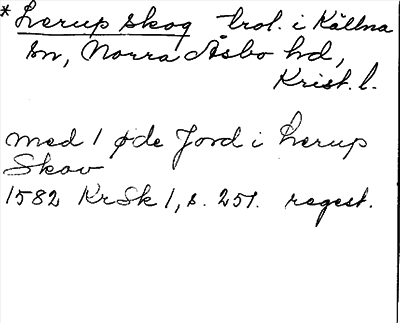 * Lerup skog trol. i Källna
sn, Norra Åsbo hd,
Krist. l.
med 1 øde Jord i Lerup
Skov
1582 KrSk 1, s. 251. regest.